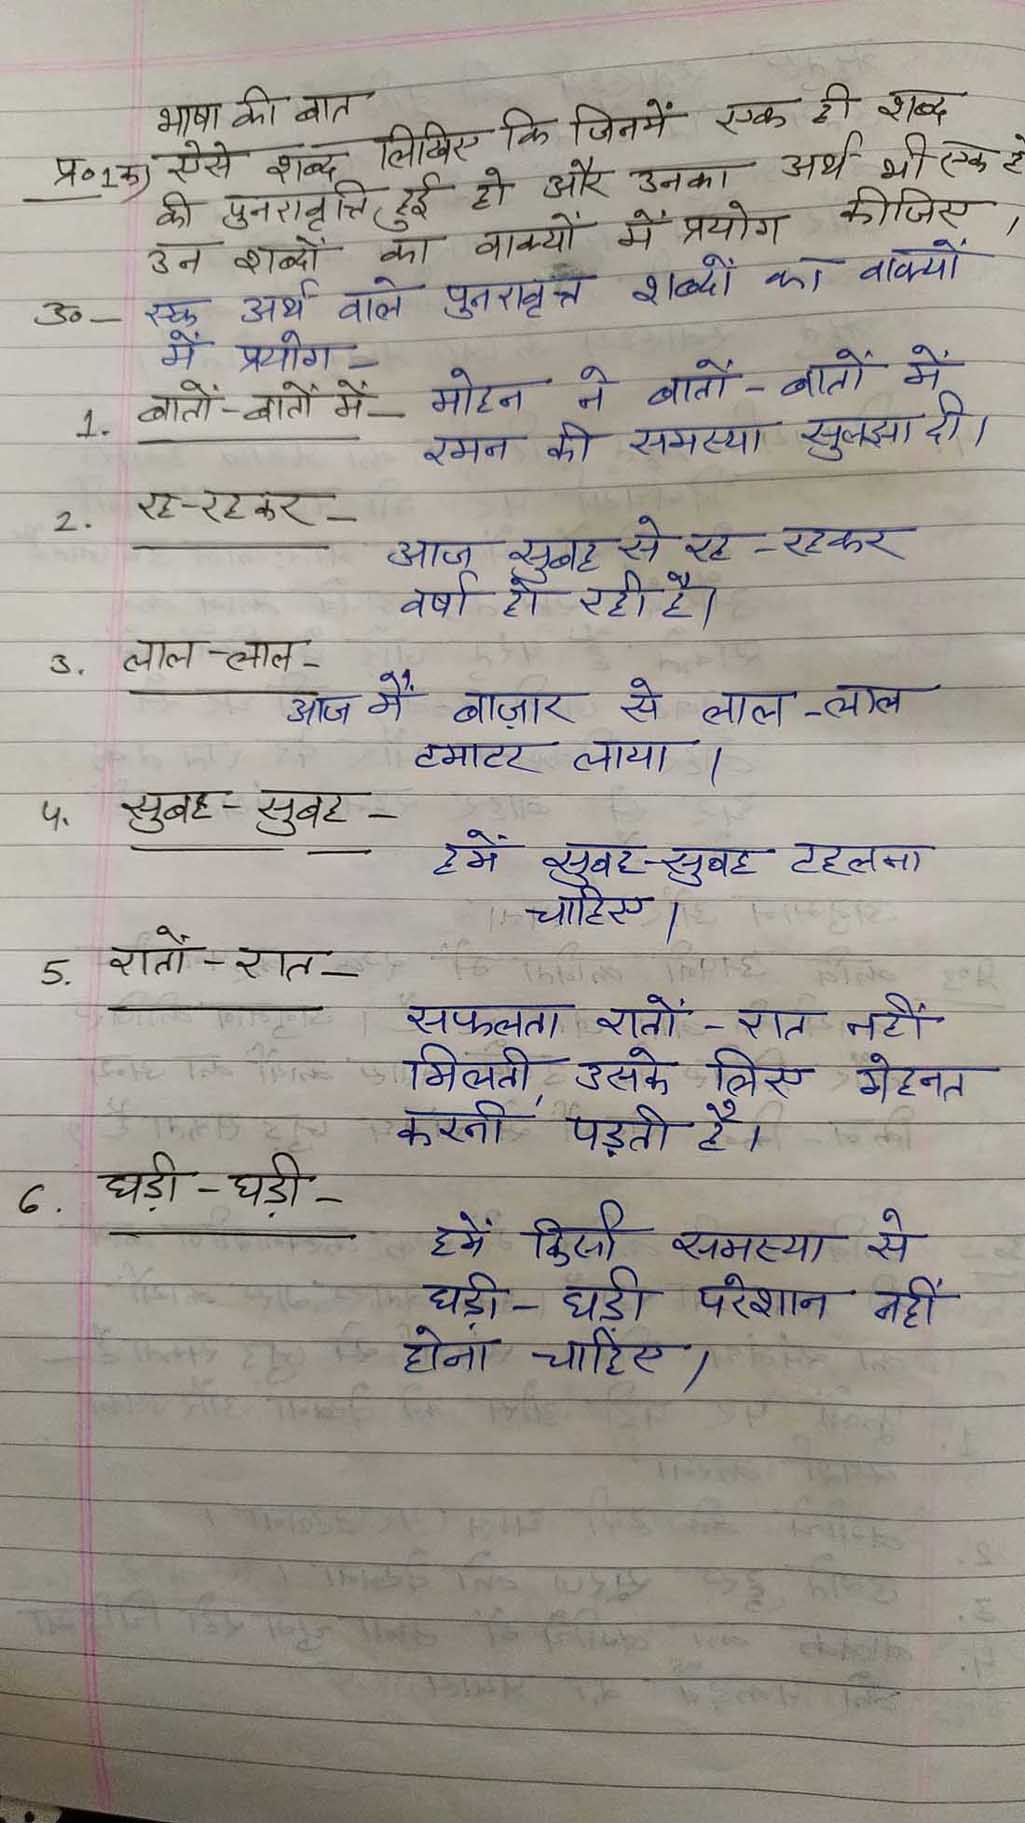 भाषा की बात
प्र०1क) ऐसे शब्द लिखिए कि जिनमें एक ही शब्द
की पुनरावृत्ति हुई हो और उनका अर्थ भी एक हो
उन शब्दों का वाक्यों में प्रयोग कीजिए।
उ०— एक अर्थ वाले पुनरावृत्त शब्दों का वाक्यों
में प्रयोग—
1. बातों-बातों में— मोहन ने बातों-बातों में
रमन की समस्या सुलझा दी।
2. रह-रहकर—
आज सुबह से रह-रहकर
वर्षा हो रही है।
3. लाल-लाल-
आज मैं बाज़ार से लाल-लाल
टमाटर लाया।
4. सुबह-सुबह—
हमें सुबह-सुबह टहलना
चाहिए।
5. रातों-रात—
सफलता रातों-रात नहीं
मिलती, उसके लिए मेहनत
करनी पड़ती है।
6. घड़ी-घड़ी—
हमें किसी समस्या से
घड़ी-घड़ी परेशान नहीं
होना चाहिए।